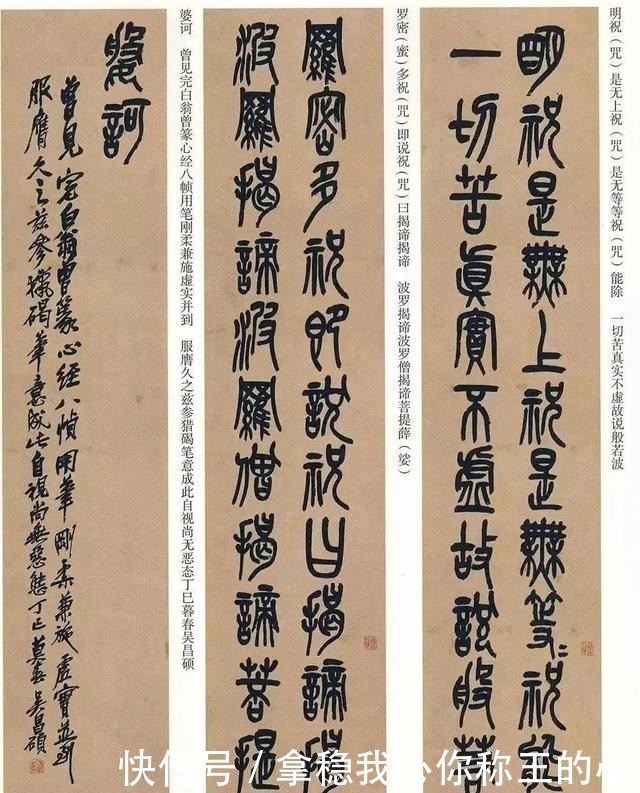 明祝（咒）是无上祝（咒）是无等等祝（咒）能除 一切苦真实不虚故说般若波
明祝是無上祝是無等々祝
一切苦眞實不虛故說般若
罗密（蜜）多祝（咒）即说祝（咒）曰揭谛揭谛 波罗揭谛波罗僧揭谛菩提薛（娑）
羅密多祝即說祝曰揭諦揭
波羅揭諦波羅僧揭諦菩提
婆诃 曾见完白翁曾篆心经八帧用笔刚柔兼施虚实并到 服膺久之兹参猎碣笔意成此自视尚无恶态丁巳暮春吴昌硕
婆訶
曾見完白翁曾篆心經八幀用筆剛柔兼施虛實並到
服膺久之茲參獵碣筆意成此自視尚無惡態丁巳莫春吳昌碩
快传号 / 拿稳我心你称王的心